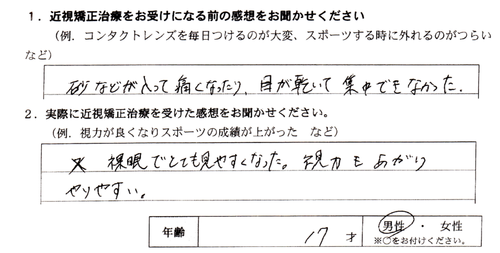 1．近視矯正治療をお受けになる前の感想をお聞かせください
（例．コンタクトレンズを毎日つけるのが大変、スポーツする時に外れるのがつらい
など）
砂などが入って痛くなったり、目が乾いて集中できなかった．
2．実際に近視矯正治療を受けた感想をお聞かせください。
（例．視力が良くなりスポーツの成績が上がった　など）
裸眼でとても見やすくなった。視力もあがり
やりやすい。
年齢 17才 男性 ・ 女性
※○をお付けください。